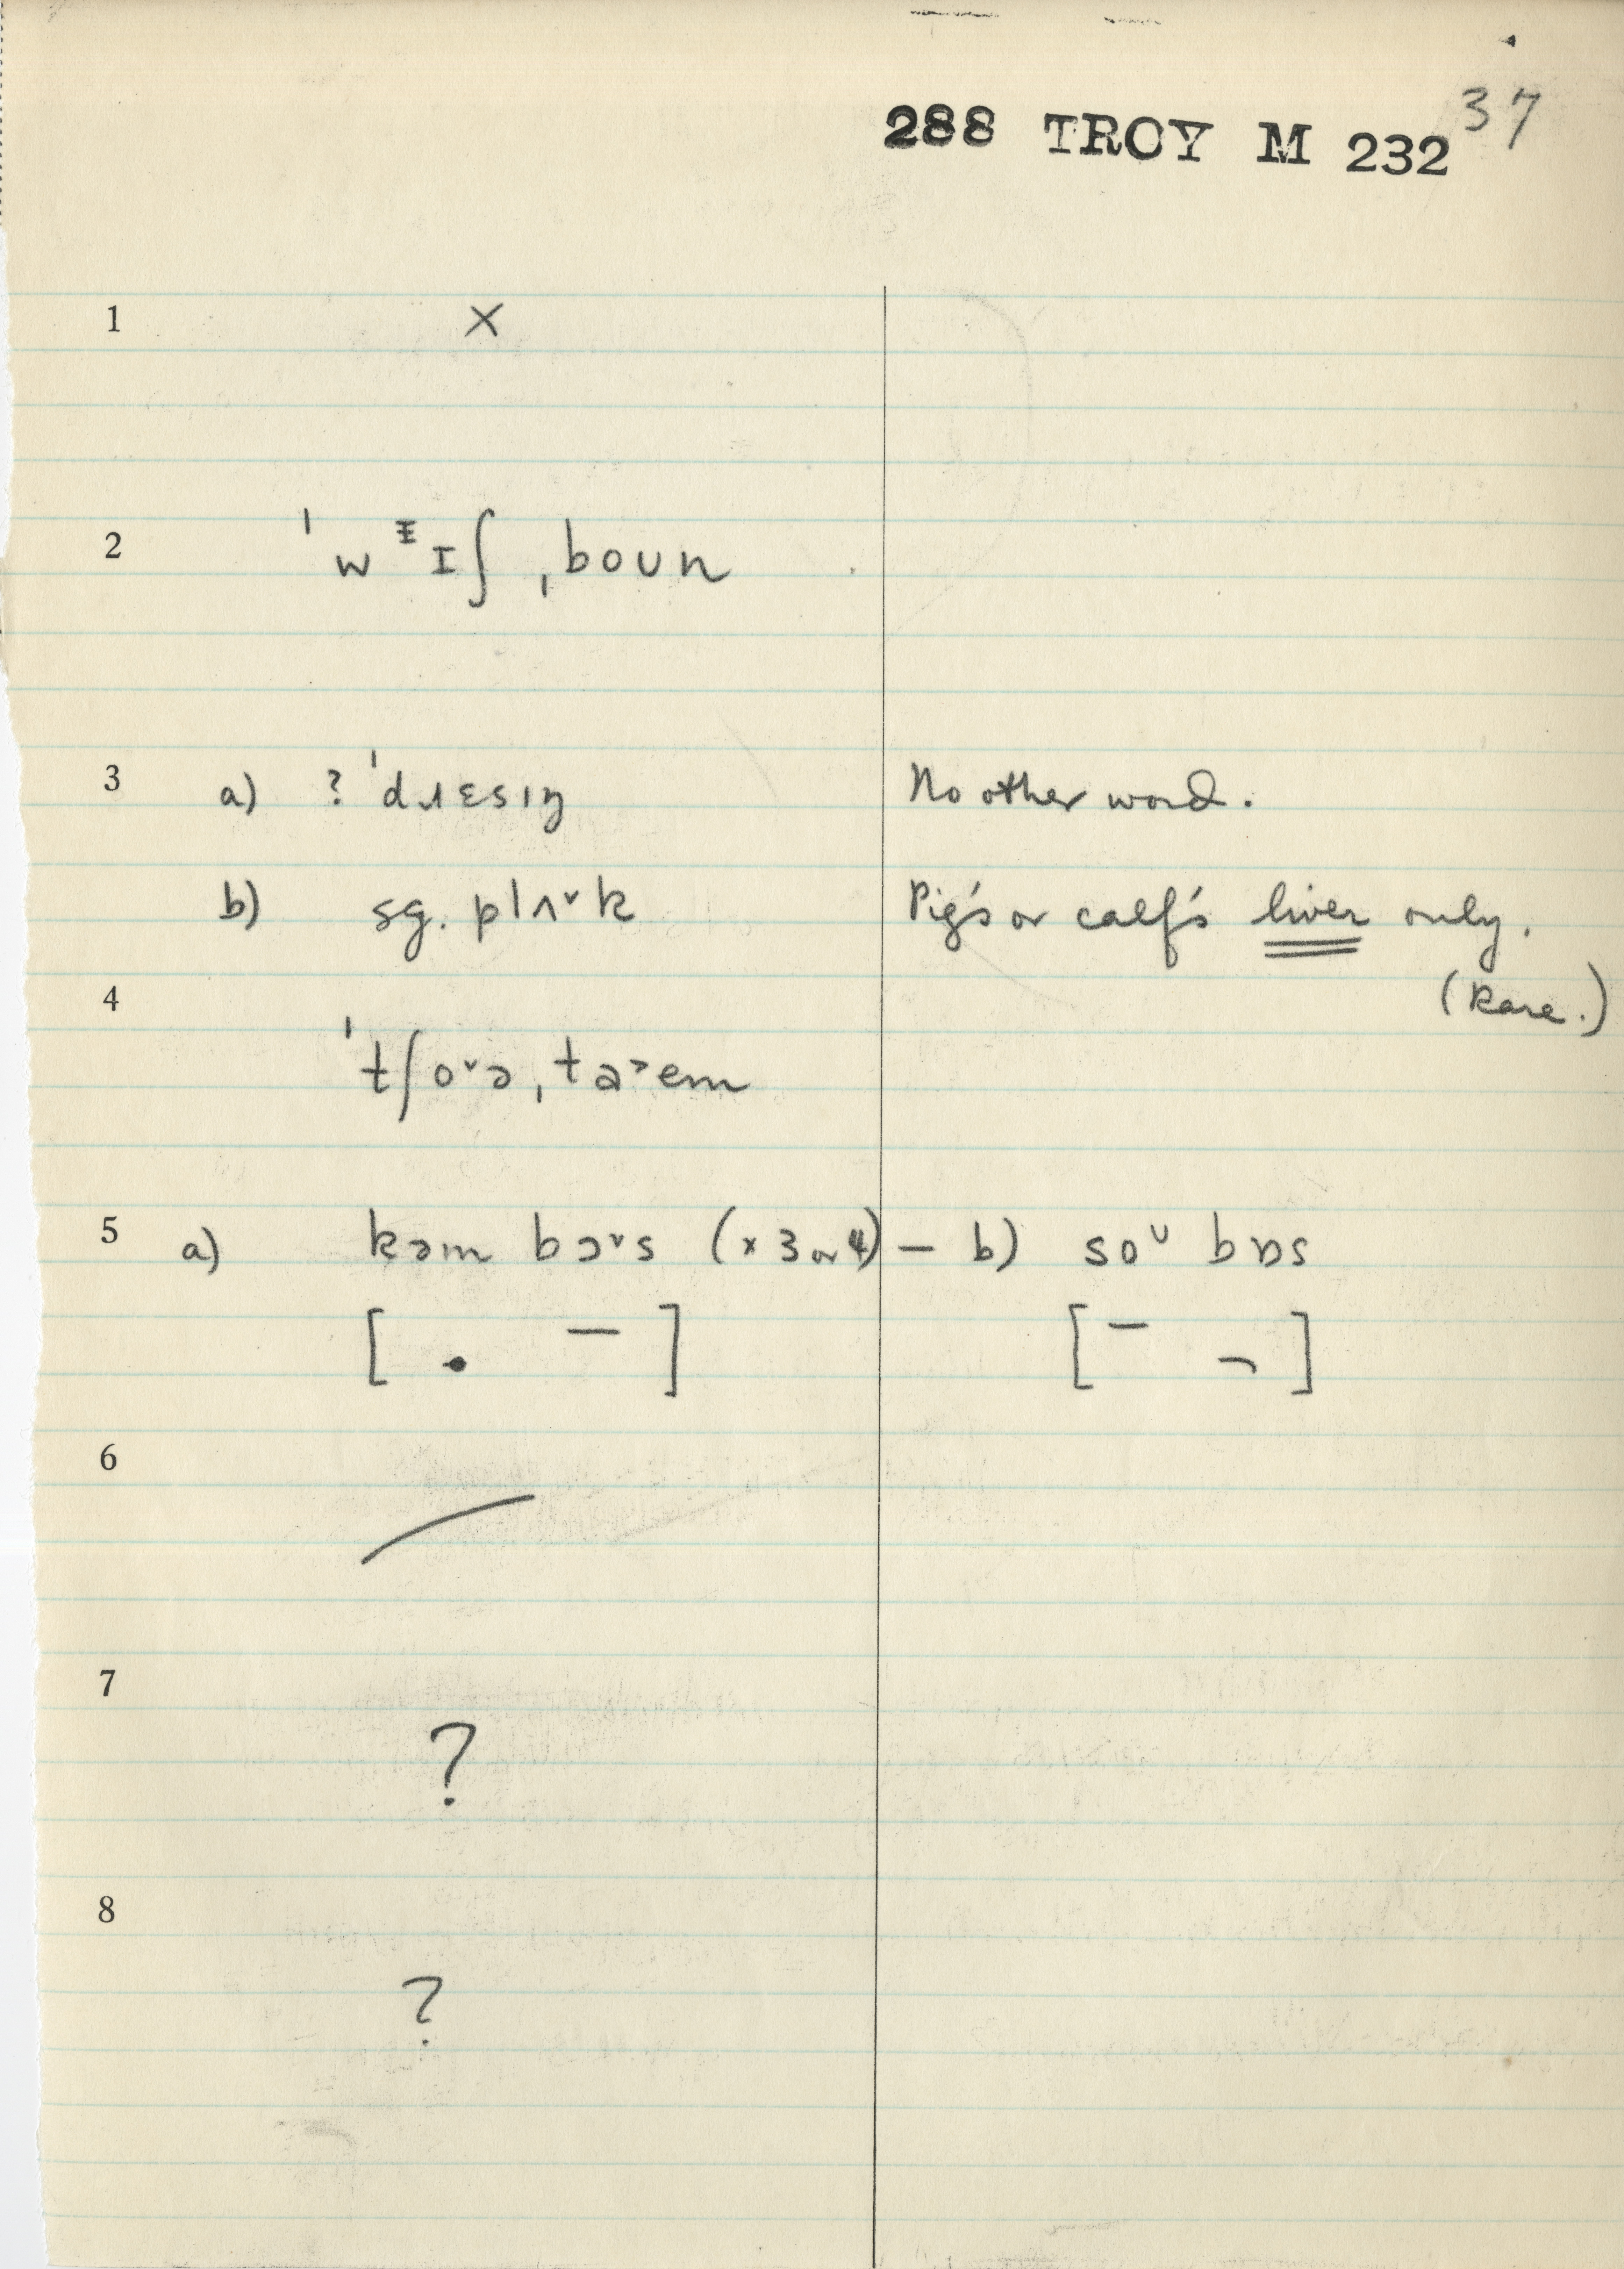 37
288 TROY M 232
1 ×
2 ˈwᵻɪʃ ˌboun
3 a) ? ˈdɹɛsɪŋ No other word.
b) sg. plʌ˅k Pig's or calf's liver only.
(Rare.)
4
ˈtʃo˅ə ˌta˃em
5 a) kəm bɔ˅s (× 3 or 4) — b) soᴗ bɒs
[ . – ] [ – ¬ ]
6
7
?
8
?